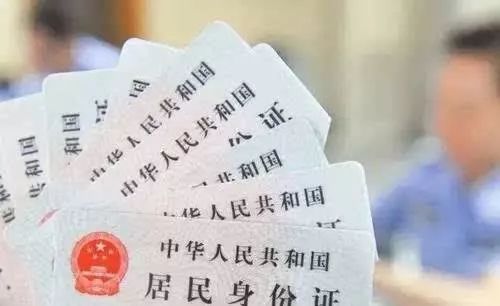 中华人民共和国
份证
中华人民共和国
中华人民共和国
份证
中华人民共和国
中华人民共和国
中华人民共和国
居民身份证